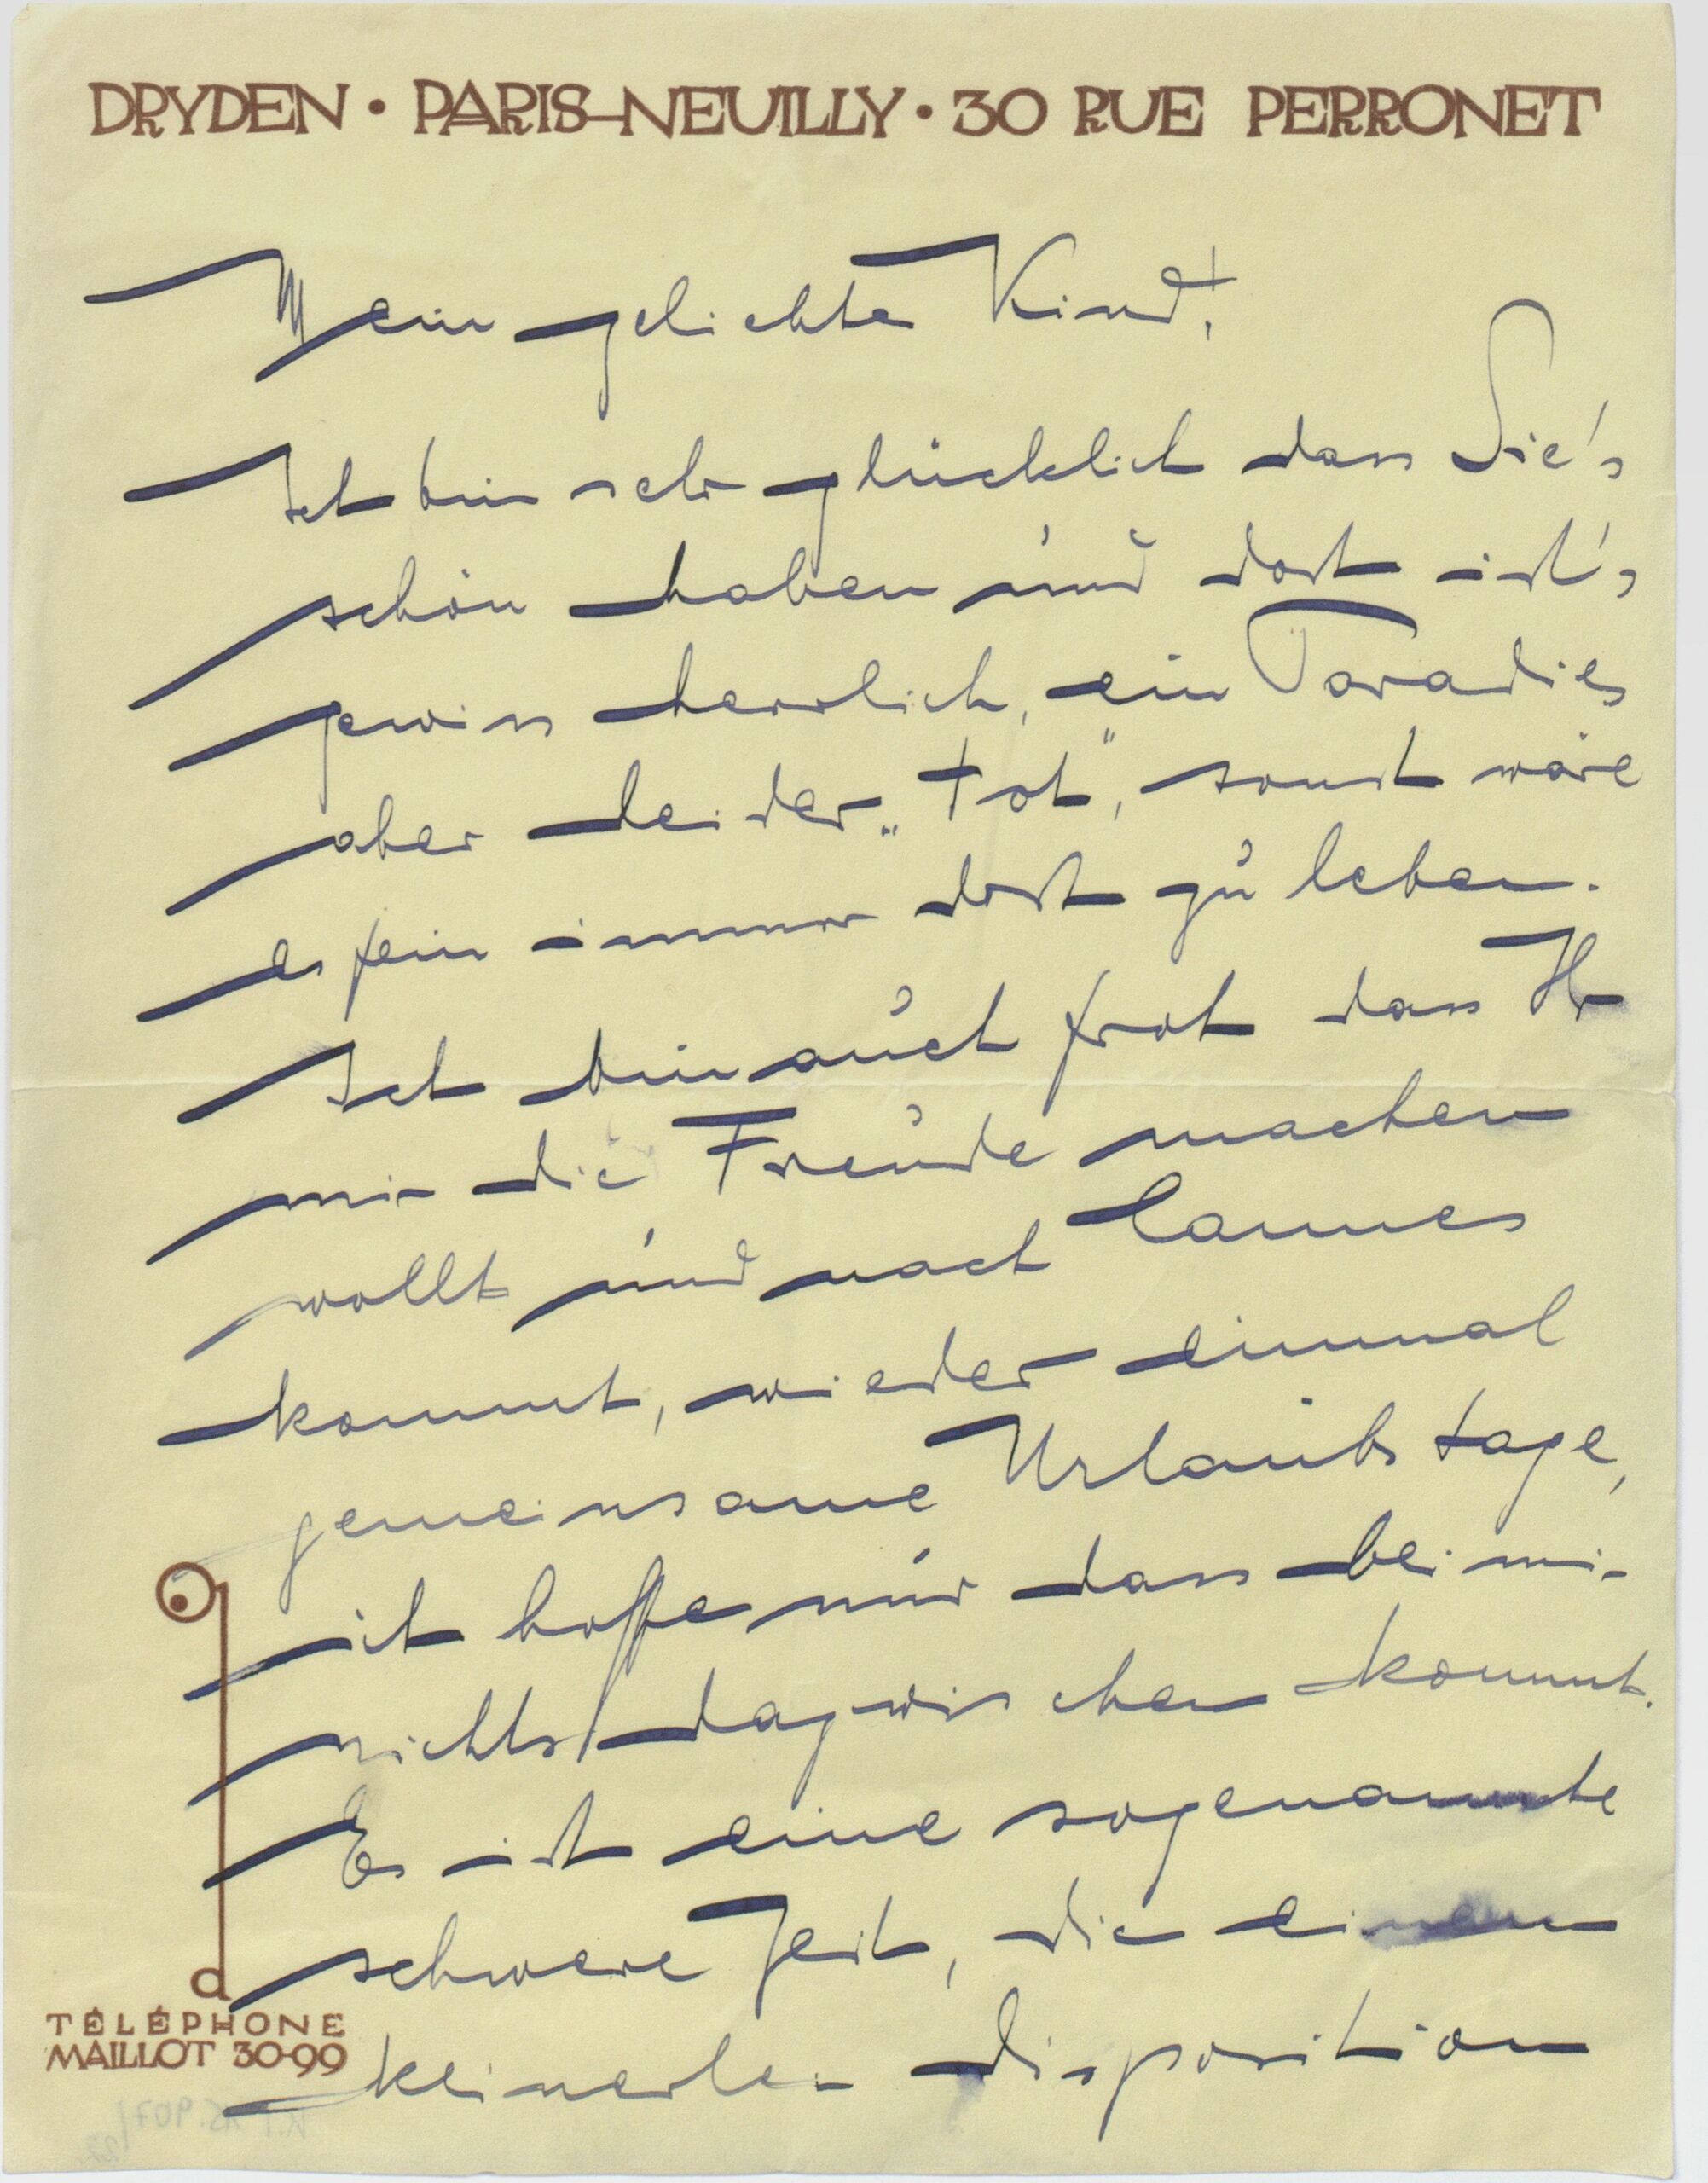 DRYDEN • PARIS-NEUILLY • 30 RUE PERRONET
Mein geliebtes Kind!
Ich bin sehr glücklich dass Sie's
schön haben und dort ist's
gewiss herrlich, ein Paradies
aber leider „tot", sonst wäre
es fein immer dort zu leben.
Ich bin auch froh dass Ihr
mir die Freude machen
wollt und nach Cannes
kommt, wieder einmal
gemeinsame Urlaubstage,
ich hoffe nur dass bei mir
nichts dazwischen kommt.
Es ist eine sogenannte
schwere Zeit, die einem
keinerlei disposition
d
TÉLÉPHONE
MAILLOT 30-99